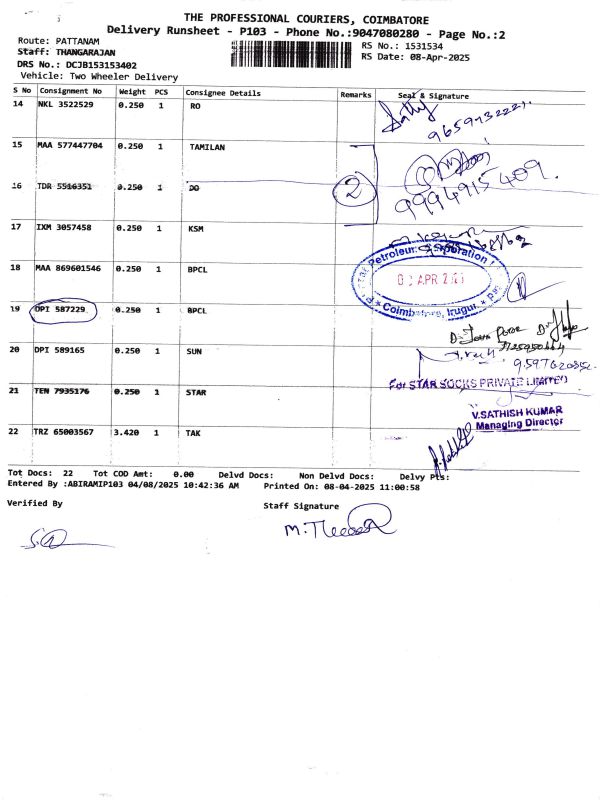 THE PROFESSIONAL COURIERS, COIMBATORE
Delivery Runsheet - P103 - Phone No.:9047080280 - Page No.:2
Route: PATTANAM
Staff: THANGARAJAN
DRS No: DCJB153153402
Vehicle: Two Wheeler Delivery
RS No.: 1531534
RS Date: 08-Apr-2025
S No Consignment No Weight PCS Consignee Details Remarks Seal & Signature
14 NKL 3522529 0.250 1 RO
9659732221
15 MAA 577447704 0.250 1 TAMILAN
16 TDR 5516351 0.250 1 DO
2
9994915409.
17 IXM 3057458 0.250 1 KSM
18 MAA 869601546 0.250 1 BPCL
Petroleum Corporation
APR
Coimbatore, Irugur.
19 DPI 587229 0.250 1 BPCL
20 DPI 589165 0.250 1 SUN
For STAR SOCKS PRIVATE LIMITED
21 TEN 7935176 0.250 1 STAR
V.SATHISH KUMAR
Managing Director
22 TRZ 65003567 3.420 1 TAK
Tot Docs: 22 Tot COD Amt: 0.00 Delvd Docs: Non Delvd Docs: Delvy Pts:
Entered By :ABIRAMIP103 04/08/2025 10:42:36 AM Printed On: 08-04-2025 11:00:58
Verified By
Staff Signature